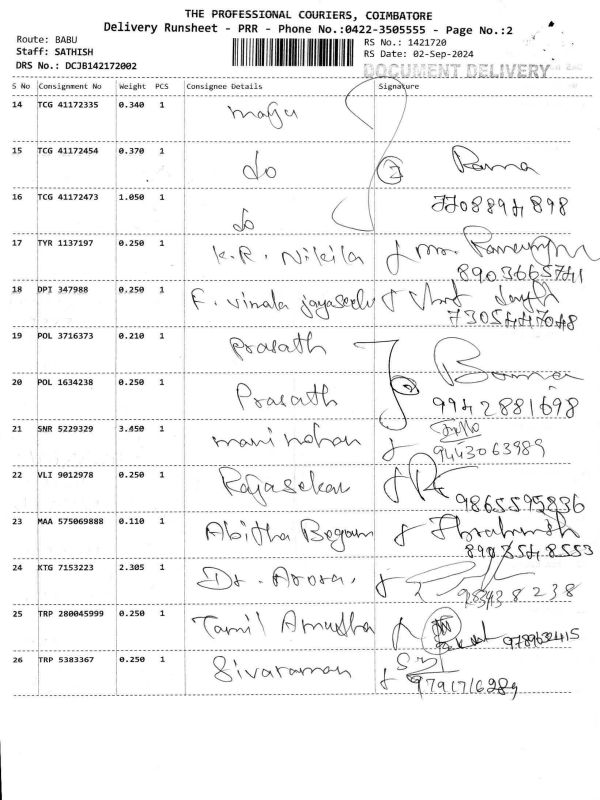 THE PROFESSIONAL COURIERS, COIMBATORE
Delivery Runsheet - PRR - Phone No.:0422-3505555 - Page No.:2
Route: BABU
Staff: SATHISH
DRS No.: DCJB142172002
RS No.: 1421720
RS Date: 02-Sep-2024
DOCUMENT DELIVERY
S No Consignment No Weight PCS Consignee Details Signature
14 TCG 41172335 0.340 1
15 TCG 41172454 0.370 1 do 2 Rama
16 TCG 41172473 1.050 1 do 7708894898
17 TYR 1137197 0.250 1 K.R. Nikila
8903665741
18 DPI 347988 0.250 1 F. Vimala jayaseelu
7305447048
19 POL 3716373 0.210 1 Prasath
20 POL 1634238 0.250 1 Prasath 9942881698
21 SNR 5229329 3.450 1 mani mohan 9443063989
22 VLI 9012978 0.250 1 Rajasekar 9865595836
23 MAA 575069888 0.110 1 Abitha Begam
24 KTG 7153223 2.305 1 Dr. Arora.
25 TRP 280045999 0.250 1 Tamil Amutha 9789632415
26 TRP 5383367 0.250 1 Sivaraman
9791716289